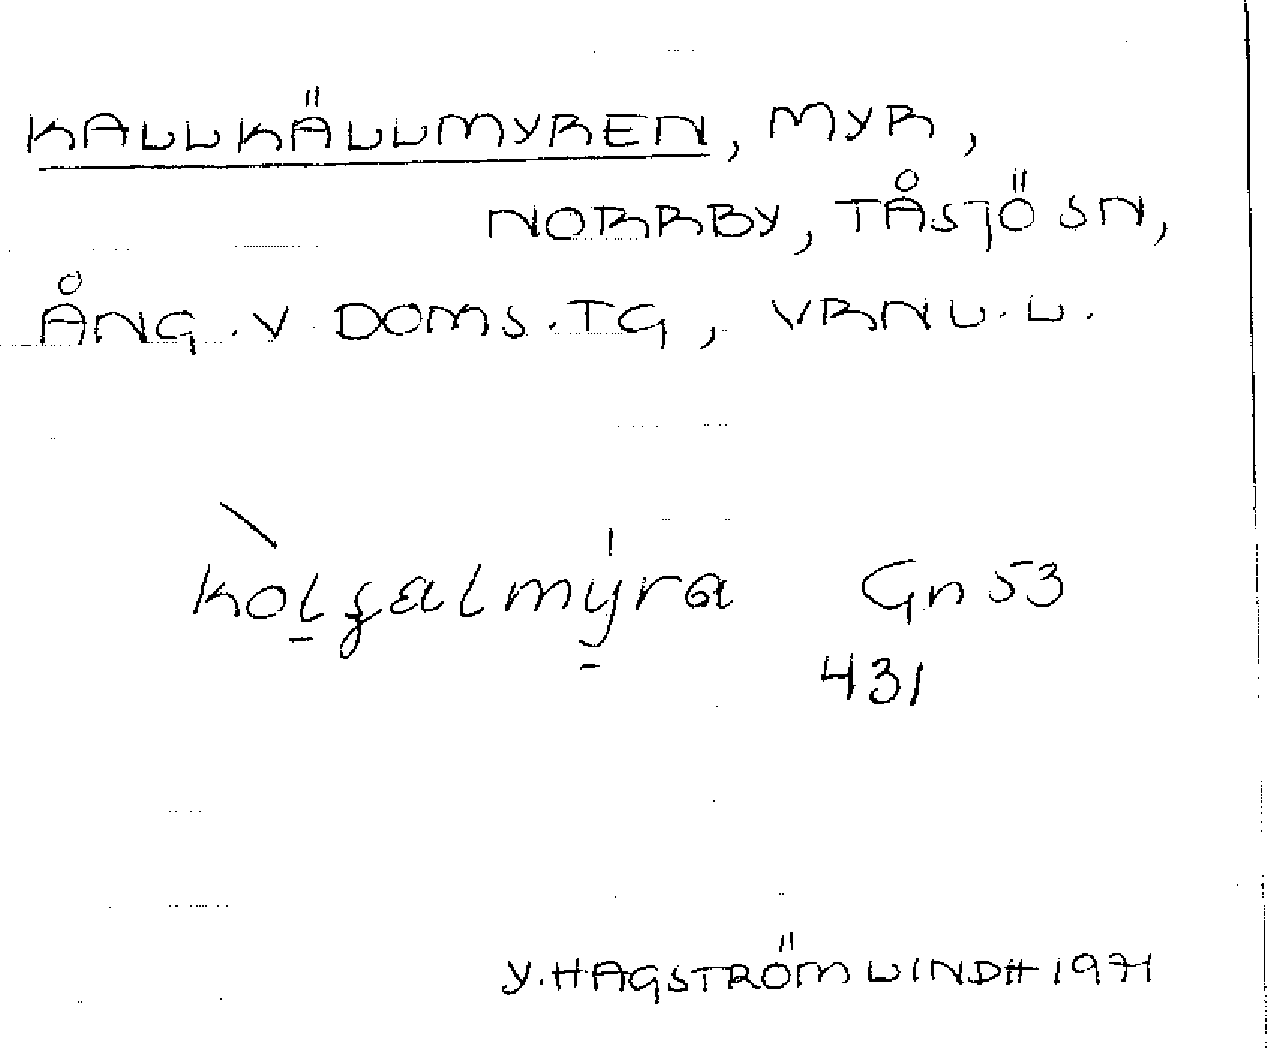 KALLKÄLLMYREN, MYR,
NORRBY, TÅSJÖ SN,
ÅNG. V DOMS. TG, VRNL. L.
kolʂalmyra Gn 53
431
Y. HAGSTRÖM LINDH 1971